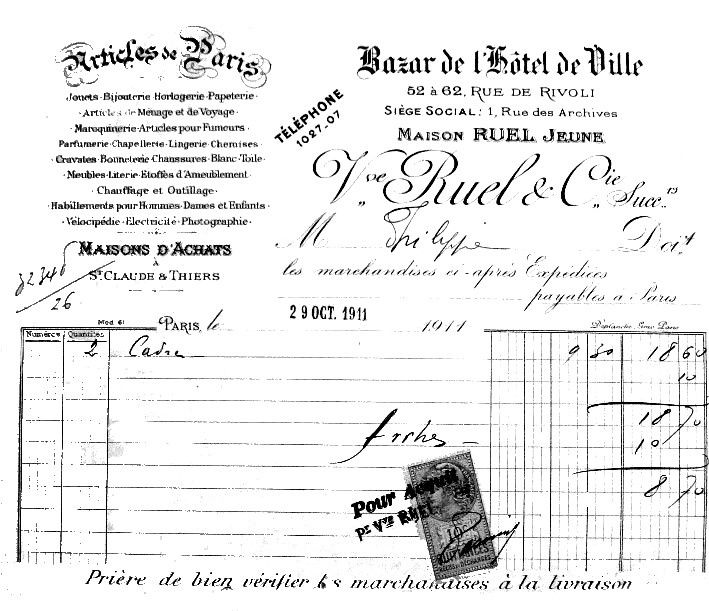 Articles de Paris
Jouets·Bijouterie·Horlogerie·Papeterie·
·Articles de Ménage et de Voyage·
·Maroquinerie·Articles pour Fumeurs·
Parfumerie·Chapellerie·Lingerie·Chemises
·Cravates·Bonneterie·Chaussures·Blanc·Toile·
·Meubles·Literie·Etoffes d'Ameublement·
·Chauffage et Outillage·
·Habillements pour Hommes·Dames et Enfants·
·Vélocipédie·Electricité·Photographie·
MAISONS D'ACHATS
À
ST CLAUDE & THIERS
26
TÉLÉPHONE
1027-07
Bazar de l'Hôtel de Ville
52 à 62, RUE DE RIVOLI
SIÈGE SOCIAL: 1, Rue des Archives
MAISON RUEL JEUNE
Vve Ruel & Cie Succrs
M Philippe Doit
les marchandises ci-après Expédiées
payables à Paris
Mod 61
PARIS, le 29 OCT. 1911 1911
Numéros Quantités
2 Cadre 9 30 18 60
10
18 70
Arrhes – 10
8 70
Pour Acquit
Pr Vve RUEL
10
Prière de bien vérifier les marchandises à la livraison